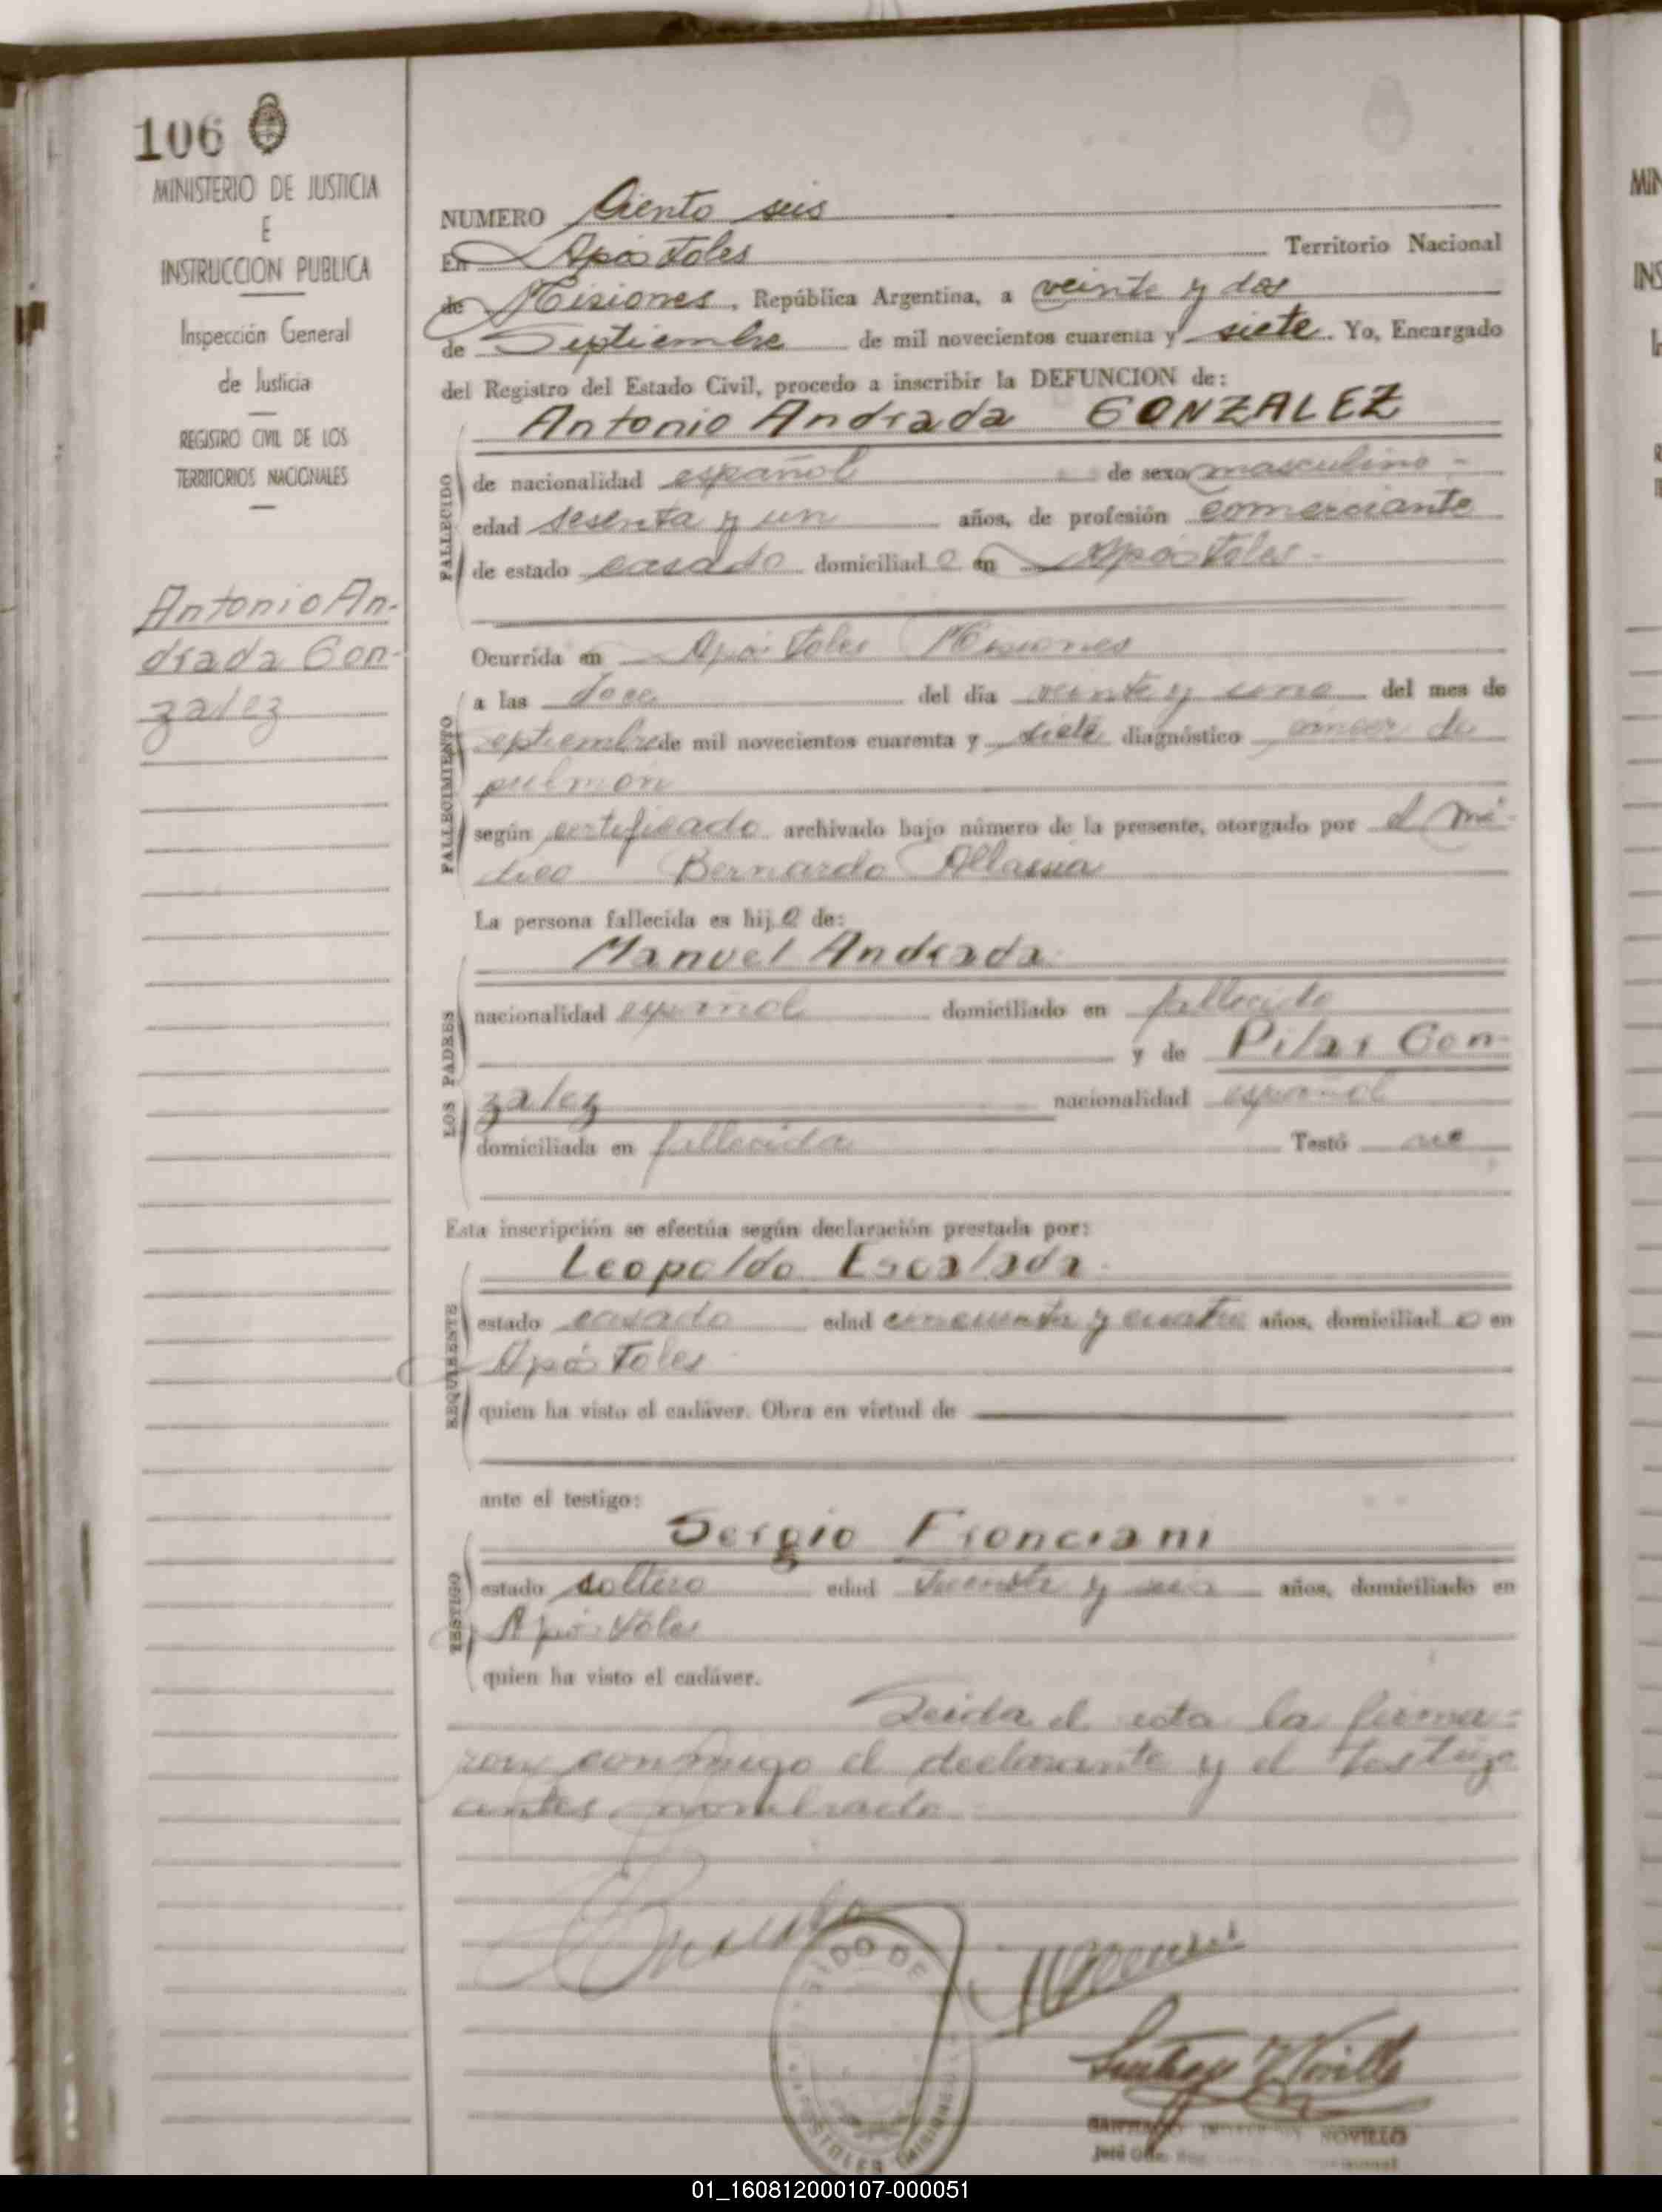 106
MINISTERIO DE JUSTICIA
E
INSTRUCCION PUBLICA
Inspección General
de Justicia
REGISTRO CIVIL DE LOS
TERRITORIOS NACIONALES
Antonio An-
drada Gon-
zalez
NUMERO Ciento seis
En Apóstoles Territorio Nacional
de Misiones, República Argentina, a veinte y dos
de Septiembre de mil novecientos cuarenta y siete. Yo, Encargado
del Registro del Estado Civil, procedo a inscribir la DEFUNCION de:
Antonio Andrada GONZALEZ
FALLECIDO
de nacionalidad español de sexo masculino -
edad sesenta y un años, de profesión comerciante
de estado casado domiciliad o en Apóstoles -
Ocurrida en Apóstoles Misiones
FALLECIMIENTO
a las doce del día veinte y uno del mes de
septiembre de mil novecientos cuarenta y siete diagnóstico cáncer de
pulmón
según certificado archivado bajo número de la presente, otorgado por el mé-
dico Bernardo Allassia
La persona fallecida es hij o de:
LOS PADRES
Manuel Andrada
nacionalidad español domiciliado en fallecido
y de Pilar Gon-
zalez nacionalidad español
domiciliada en fallecida Testó no
Esta inscripción se efectúa según declaración prestada por:
REQUIRENTE
Leopoldo Escalada
estado casado edad cincuenta y cuatro años, domiciliad o en
Apóstoles
quien ha visto el cadáver. Obra en virtud de
ante el testigo:
TESTIGO
Sergio Fronciani
estado soltero edad treinta y seis años, domiciliado en
Apóstoles
quien ha visto el cadáver.
Leida el acta la firma-
ron conmigo el declarante y el testigo
antes nombrado
APOSTOLES MISIONES
NOVILLO
01_160812000107-000051